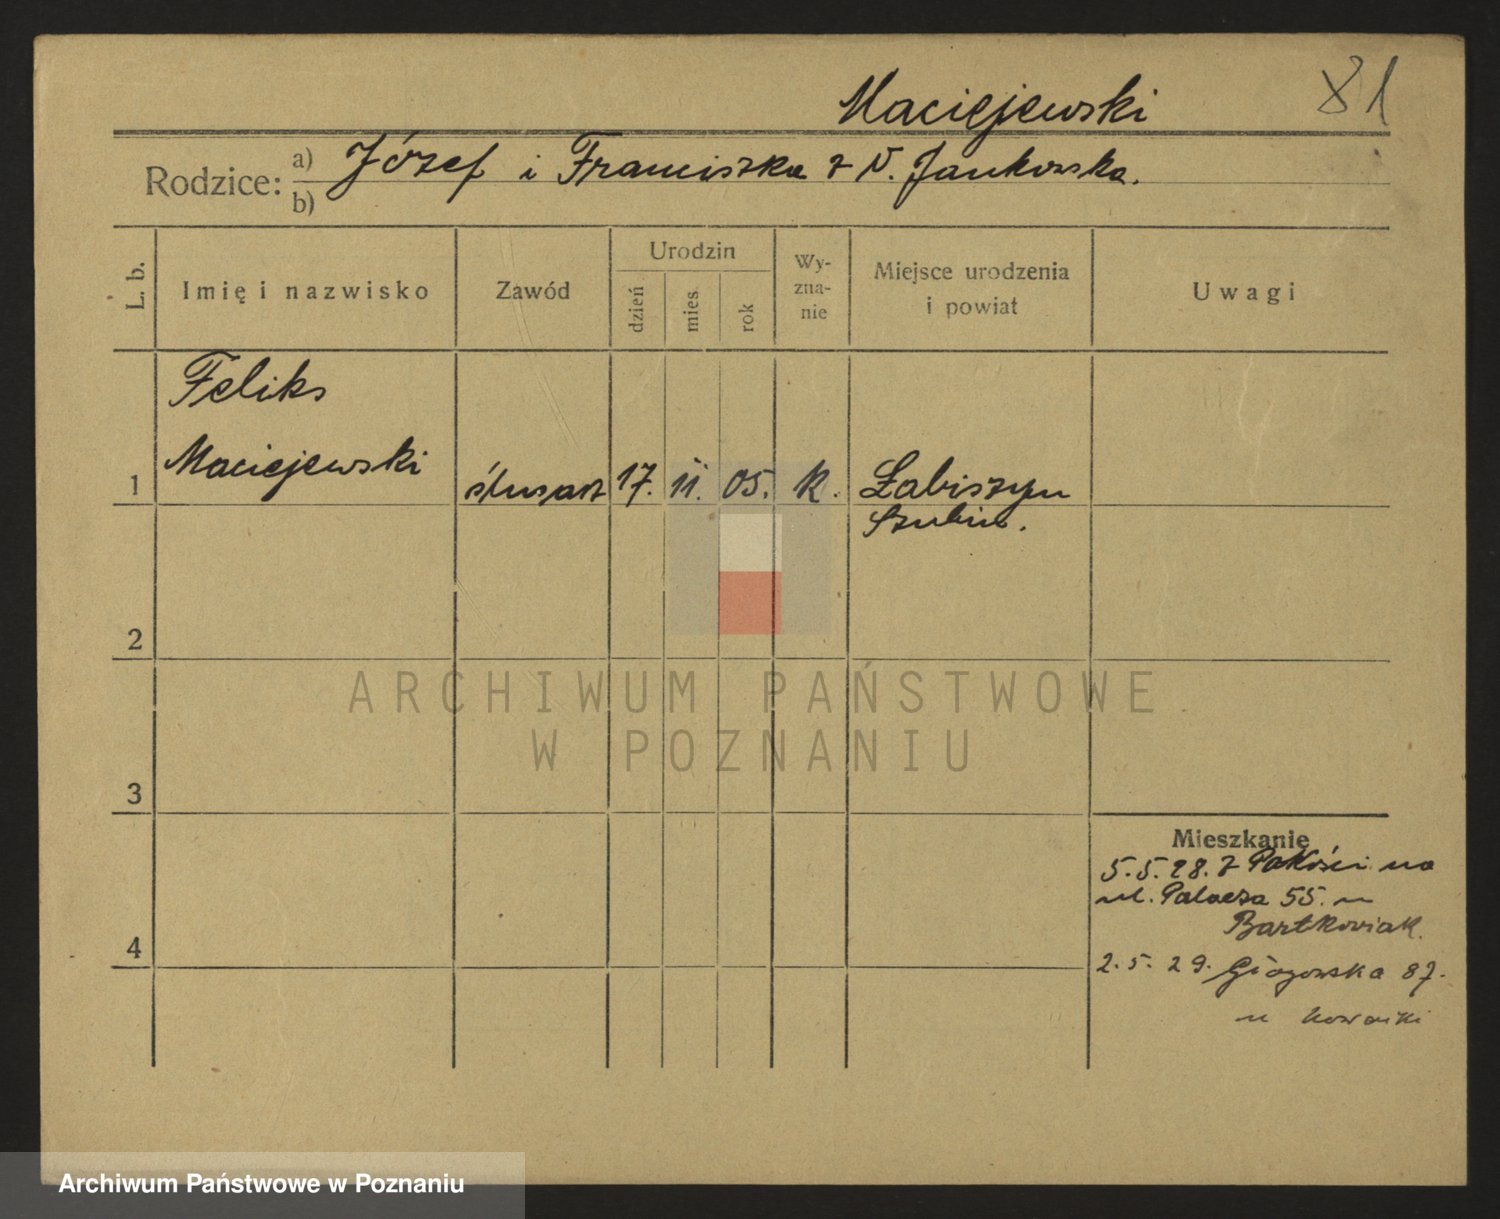 Maciejewski 81
Rodzice: a) Józef i Franciszka z d. Jankowska.
b)
L. b. Imię i nazwisko Zawód Urodzin dzień mies. rok Wy-zna-nie Miejsce urodzenia i powiat Uwagi
Feliks
1 Maciejewski ślusarz 17. 11. 05. k. Łabiszyn
Szubin.
2
3
4
Mieszkanie
5.5.28. z Pakości na
ul. Palacza 55. u
Bartkowiak.
2.5.29. Głogowska 87.
u
ARCHIWUM PAŃSTWOWE
W POZNANIU
Archiwum Państwowe w Poznaniu